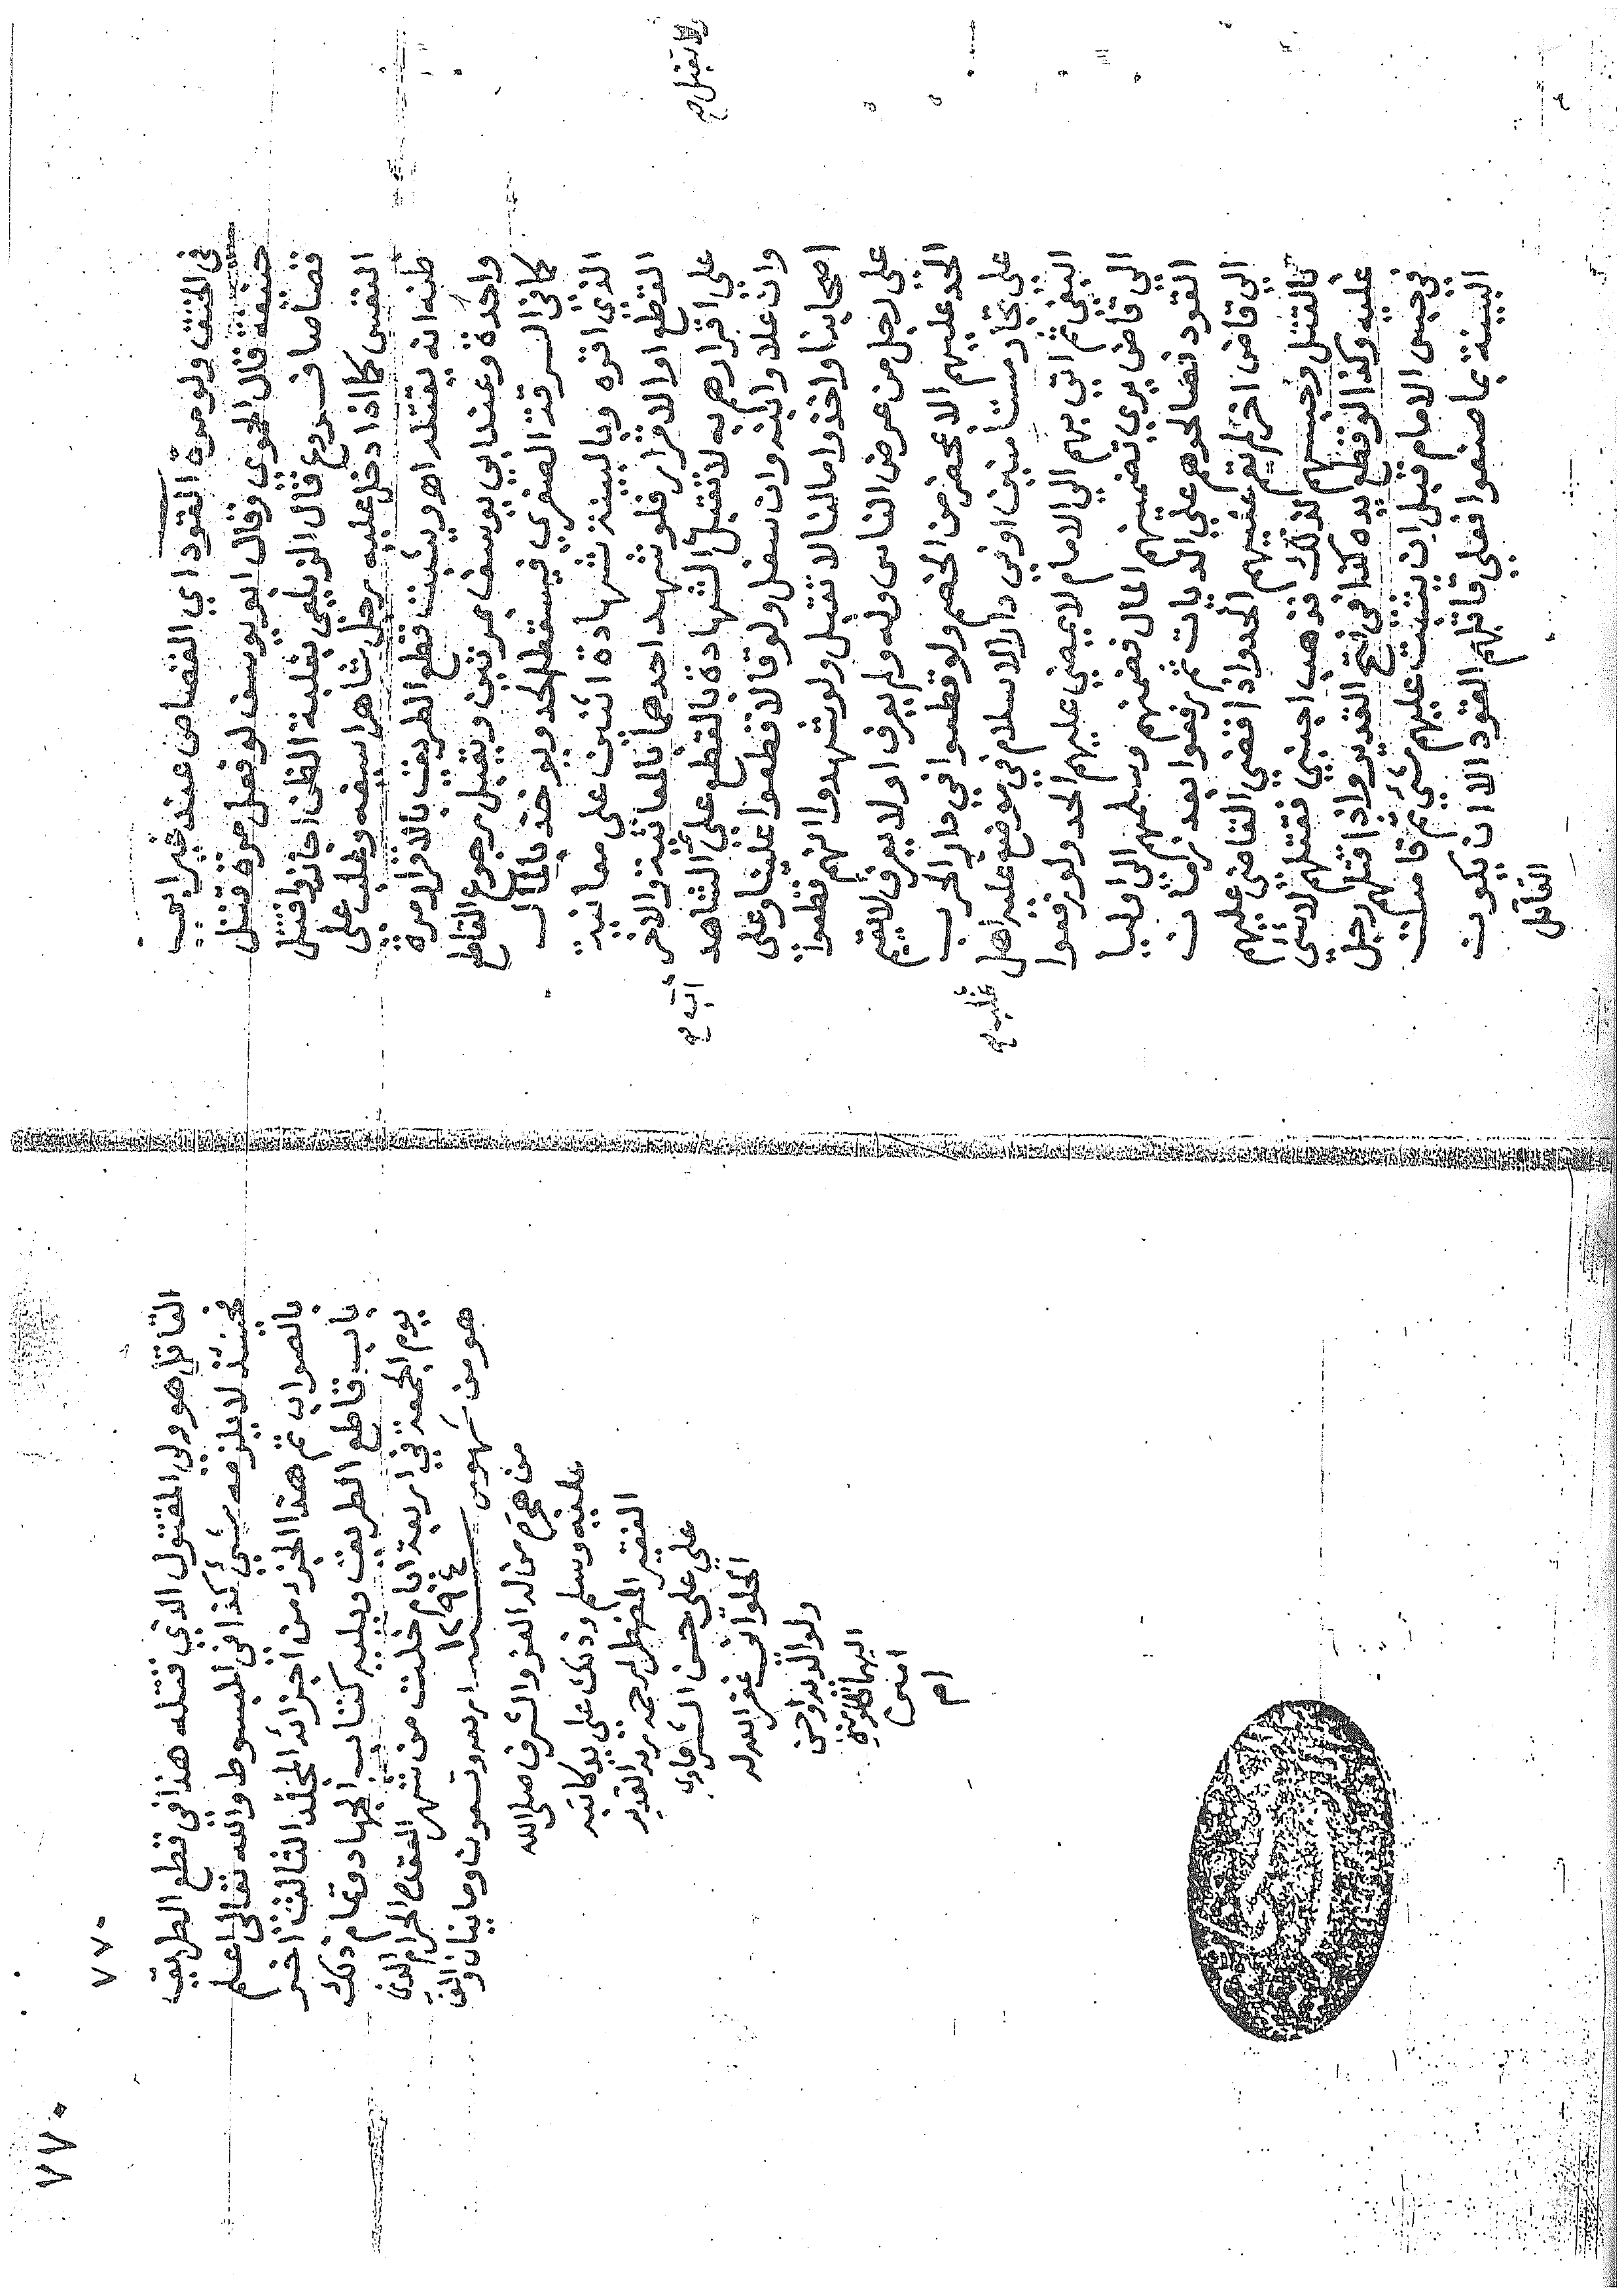 في الخنق ولو مرة القود اي القصاص عند غير ابي
حنيفة قال الحموي وقال ابو يوسف لو فعل مرة قتل
قصاصا فروع قال الزيلعي بغلبة الظن اجازوا قتل
النفس كما اذا دخل عليه رجل شاهرا سيفه وغلب على
ظنه انه يقتله اهـ ويثبت قطع الطريق بالاقرار مرة
واحدة وعند ابي يوسف مرتين ويقبل رجوع القاطع
كما في السرقة الصغرى فيسقط الحد ويؤخذ بالمال
الذي اقر به وبالبينة شهادة اثنين على معاينة
القطع او الاقرار فلو شهد احدهما بالمعاينة والاخر
على اقرارهم به لا تقبل الشهادة بالقطع على الشاهد
وان علا وابنه وان سفل ولو قالا قطعوا علينا وعلى
اصحابنا واخذوا مالنا لا تقبل ولو شهدوا انهم قطعوا
على رجل من عرض الناس وله ولي يعرف او لا يعرف لا يقيم
الحد عليهم الا بمحضر من الخصم ولو قطعوا في دار الحرب
على تجار مستأمنين او في دار الاسلام في موضع غلب عليه اهل
البغي ثم اتي بهم الى الامام لا يمضي عليهم الحد ولو رفعوا
الى قاض يرى تضمينهم المال فضمنهم وسلمهم الى اوليا
القود فصالحوهم على الديات ثم رفعوا بعد زمان
الى قاض اخر لم يقم عليهم الحد واذا قضى القاضي عليهم
بالقتل وحبسهم لذلك فذهب اجنبي فقتلهم لا شي
عليه وكذا لو قطع يده كذا في فتح القدير واذا قتلهم رجل
في حبس الامام قبل ان يثبت عليهم شي ثم قامت
البينة بما صنعوا فعلى قاتلهم القود الا ان يكون
القاتل
ولا تقبل صح
اب صح
غلب صح
٧٧٠
٧٧٠
القاتل هو ولي المقتول الذي قتله هذا في قطع الطريق
فحينئذ لا يلزمه شي كذا في المبسوط والله تعالى اعلم
بالصواب تم هذا الجزء من اجزاء المجلد الثالث اخر
باب قاطع الطريق ويليه كتاب الجهاد وتمام ذلك
يوم الجمعة في اربعة ايام خلت من شهر القعدة الحرام الذي
هو من شهور ١٢٩٤ سنة اربع وتسعون ومايتان والف
من هجرة من له العز والشرف صلى الله
عليه وسلم وذلك على يد كاتبه
الفقير المضطر لرحمة ربه القدير
علي علي حسن الشرقاوي
الحلواني غفر الله له
ولوالديه واحسن
اليهما واليه
امين
ام